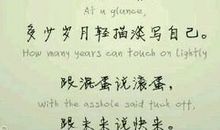 At u glunce,
多少岁月轻描淡写自己。
How many years can touch on lightly
跟混蛋说滚蛋,
With the asshole said fuck off,
跟未来说快来。